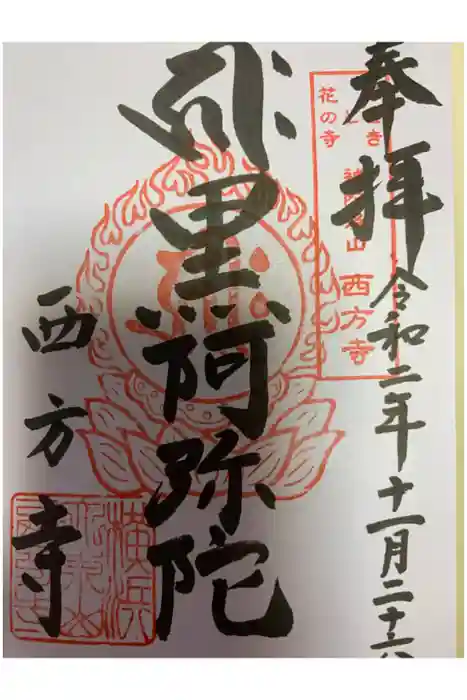 奉拝
令和二年十一月二十六
花の寺
西方寺
黒阿弥陀
西方寺
横浜